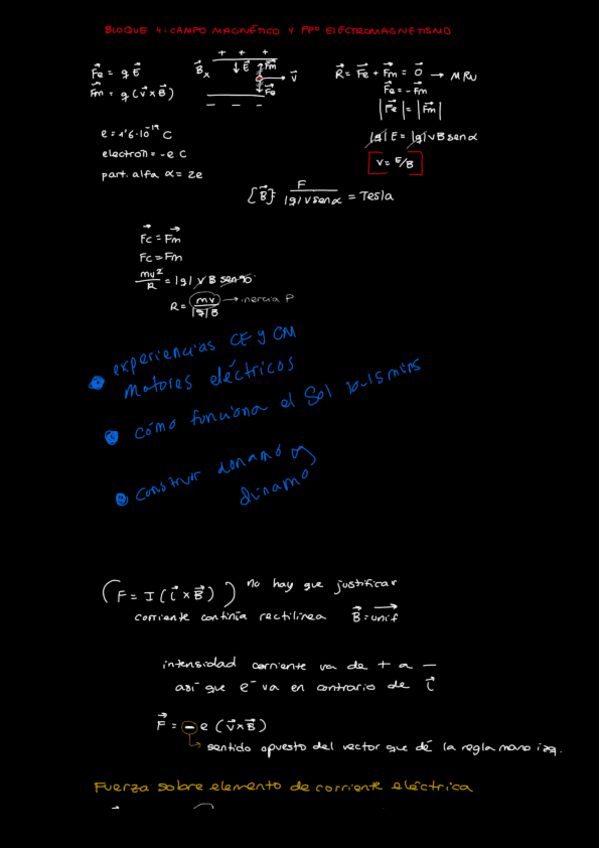 BLOQUE 4: CAMPO MAGNÉTICO Y PPº ELECTROMAGNETISMO
+ + +
F⃗e = q E⃗
B⃗ x
E⃗
F⃗m
V⃗
F⃗e
R⃗ = F⃗e + F⃗m = 0⃗ → MRU
F⃗m = q (v⃗ x B⃗)
_ _ _
F⃗e = -F⃗m
|F⃗e| = |F⃗m|
e = 1'6·10⁻¹⁹ C
|q| E = |q| v B sen α
electrón = -e C
v = E/B
part. alfa α = 2e
[B⃗]: F / |q| v sen α = Tesla
F⃗c = F⃗m
Fc = Fm
mv²/R = |q| v B sen 90
R = mv/|q|B → inercia P
experiencias CE y CM
Motores eléctricos
cómo funciona el Sol 10-15 mins
construir donamo y
dinamo
(F = I (l⃗ x B⃗)) no hay que justificar
corriente continia rectilínea B⃗ = unif
intensidad corriente va de + a -
así que e⁻ va en contrario de l⃗
F⃗ = - e (v⃗ x B⃗)
sentido opuesto del vector que dé la regla mano izq.
Fuerza sobre elemento de corriente eléctrica